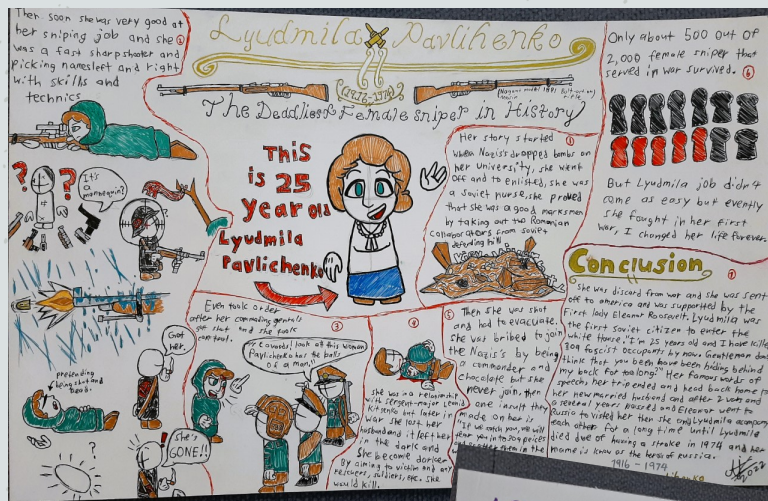 Lyudmila Pavlihenko
(1916-1974)
The Deadliest Female Sniper in History
Then soon she was very good at
her sniping job and she
was a fast sharpshooter and
picking names left and right
with skills and
technics
②
It's
a
mannequin?
?
?
THiS
is 25
year old
Lyudmila
Pavlichenko
Her story started ①
when Nazis's dropped bombs on
her University, she went
off and to enlisted, she was
a Soviet nurse, she proved
that she was a good marksmen
by taking out two Romanian
collaborators from soviet
defending hill
Only about 500 out of
2,000 female sniper that
served in war survived. ⑥
But Lyudmila job didn't
came as easy but evently
she fought in her first
war, I changed her life forever.
Even took order
after her commading genrals
get shot and she took
control.
③
Got
her.
pretending
being shot and
dead.
?
she's
GONE!!
cowards! look at this woman
Pavlichenko has the balls
of a man!!
④
she was in a relationship
with sergent-major Leonid
Kitsenko but later in
war she lost her
husband and it left her
in the dark and
She become darker
By aiming to victim and any
rescuers, soldiers, etc. she
would kill.
⑤
Then she was shot
and had to evacuate.
she was bribed to join
the Nazis's by being
a commander and
chocolate but she
never join, then
one insult they
made on her is
If we catch you, we will
tear you in to 309 peices
Conclusion
⑦
She was discard from war and she was sent
off to america and was supported by the
First lady Eleanor Roosevelt. Lyudmila was
the first soviet citizen to enter the
white House. "I'm 25 years old and I have killed
309 fascist occupants by now. Gentleman don't
think that you been hiding behind
my back for too long." Her famous words of
speech, her trip ended and head back home to
her new married husband and after 2 wars and
several years passed and Eleanor went to
Russia to visited her then she and Lyudmila acompany
each other for a long time until Lyudmila
died due of having a stroke in 1974 and her
name is know as the heros of russia.
1916 - 1974
2022